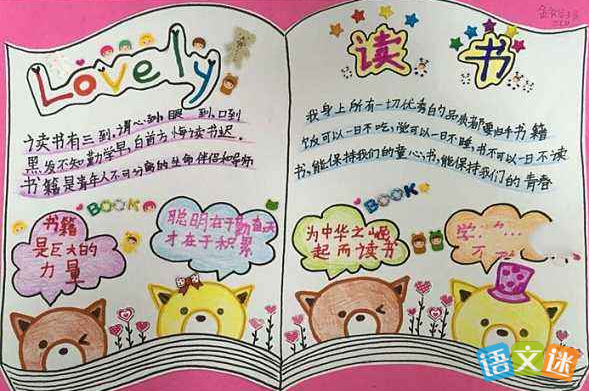 Lovely
读书有三到，谓心到，眼到，口到
黑发不知勤学早，白首方悔读书迟。
书籍是青年人不可分离的生命伴侣和导师
BOOK
书籍
是巨大的
力量
聪明在于勤奋天
才在于积累
读书
我身上所有一切优秀的品质都要归于书籍
饭可以一日不吃，觉可以一日不睡，书不可以一日不读
书，能保持我们的童心；书，能保持我们的青春
BOOK
为中华之崛
起而读书
学
语文迷